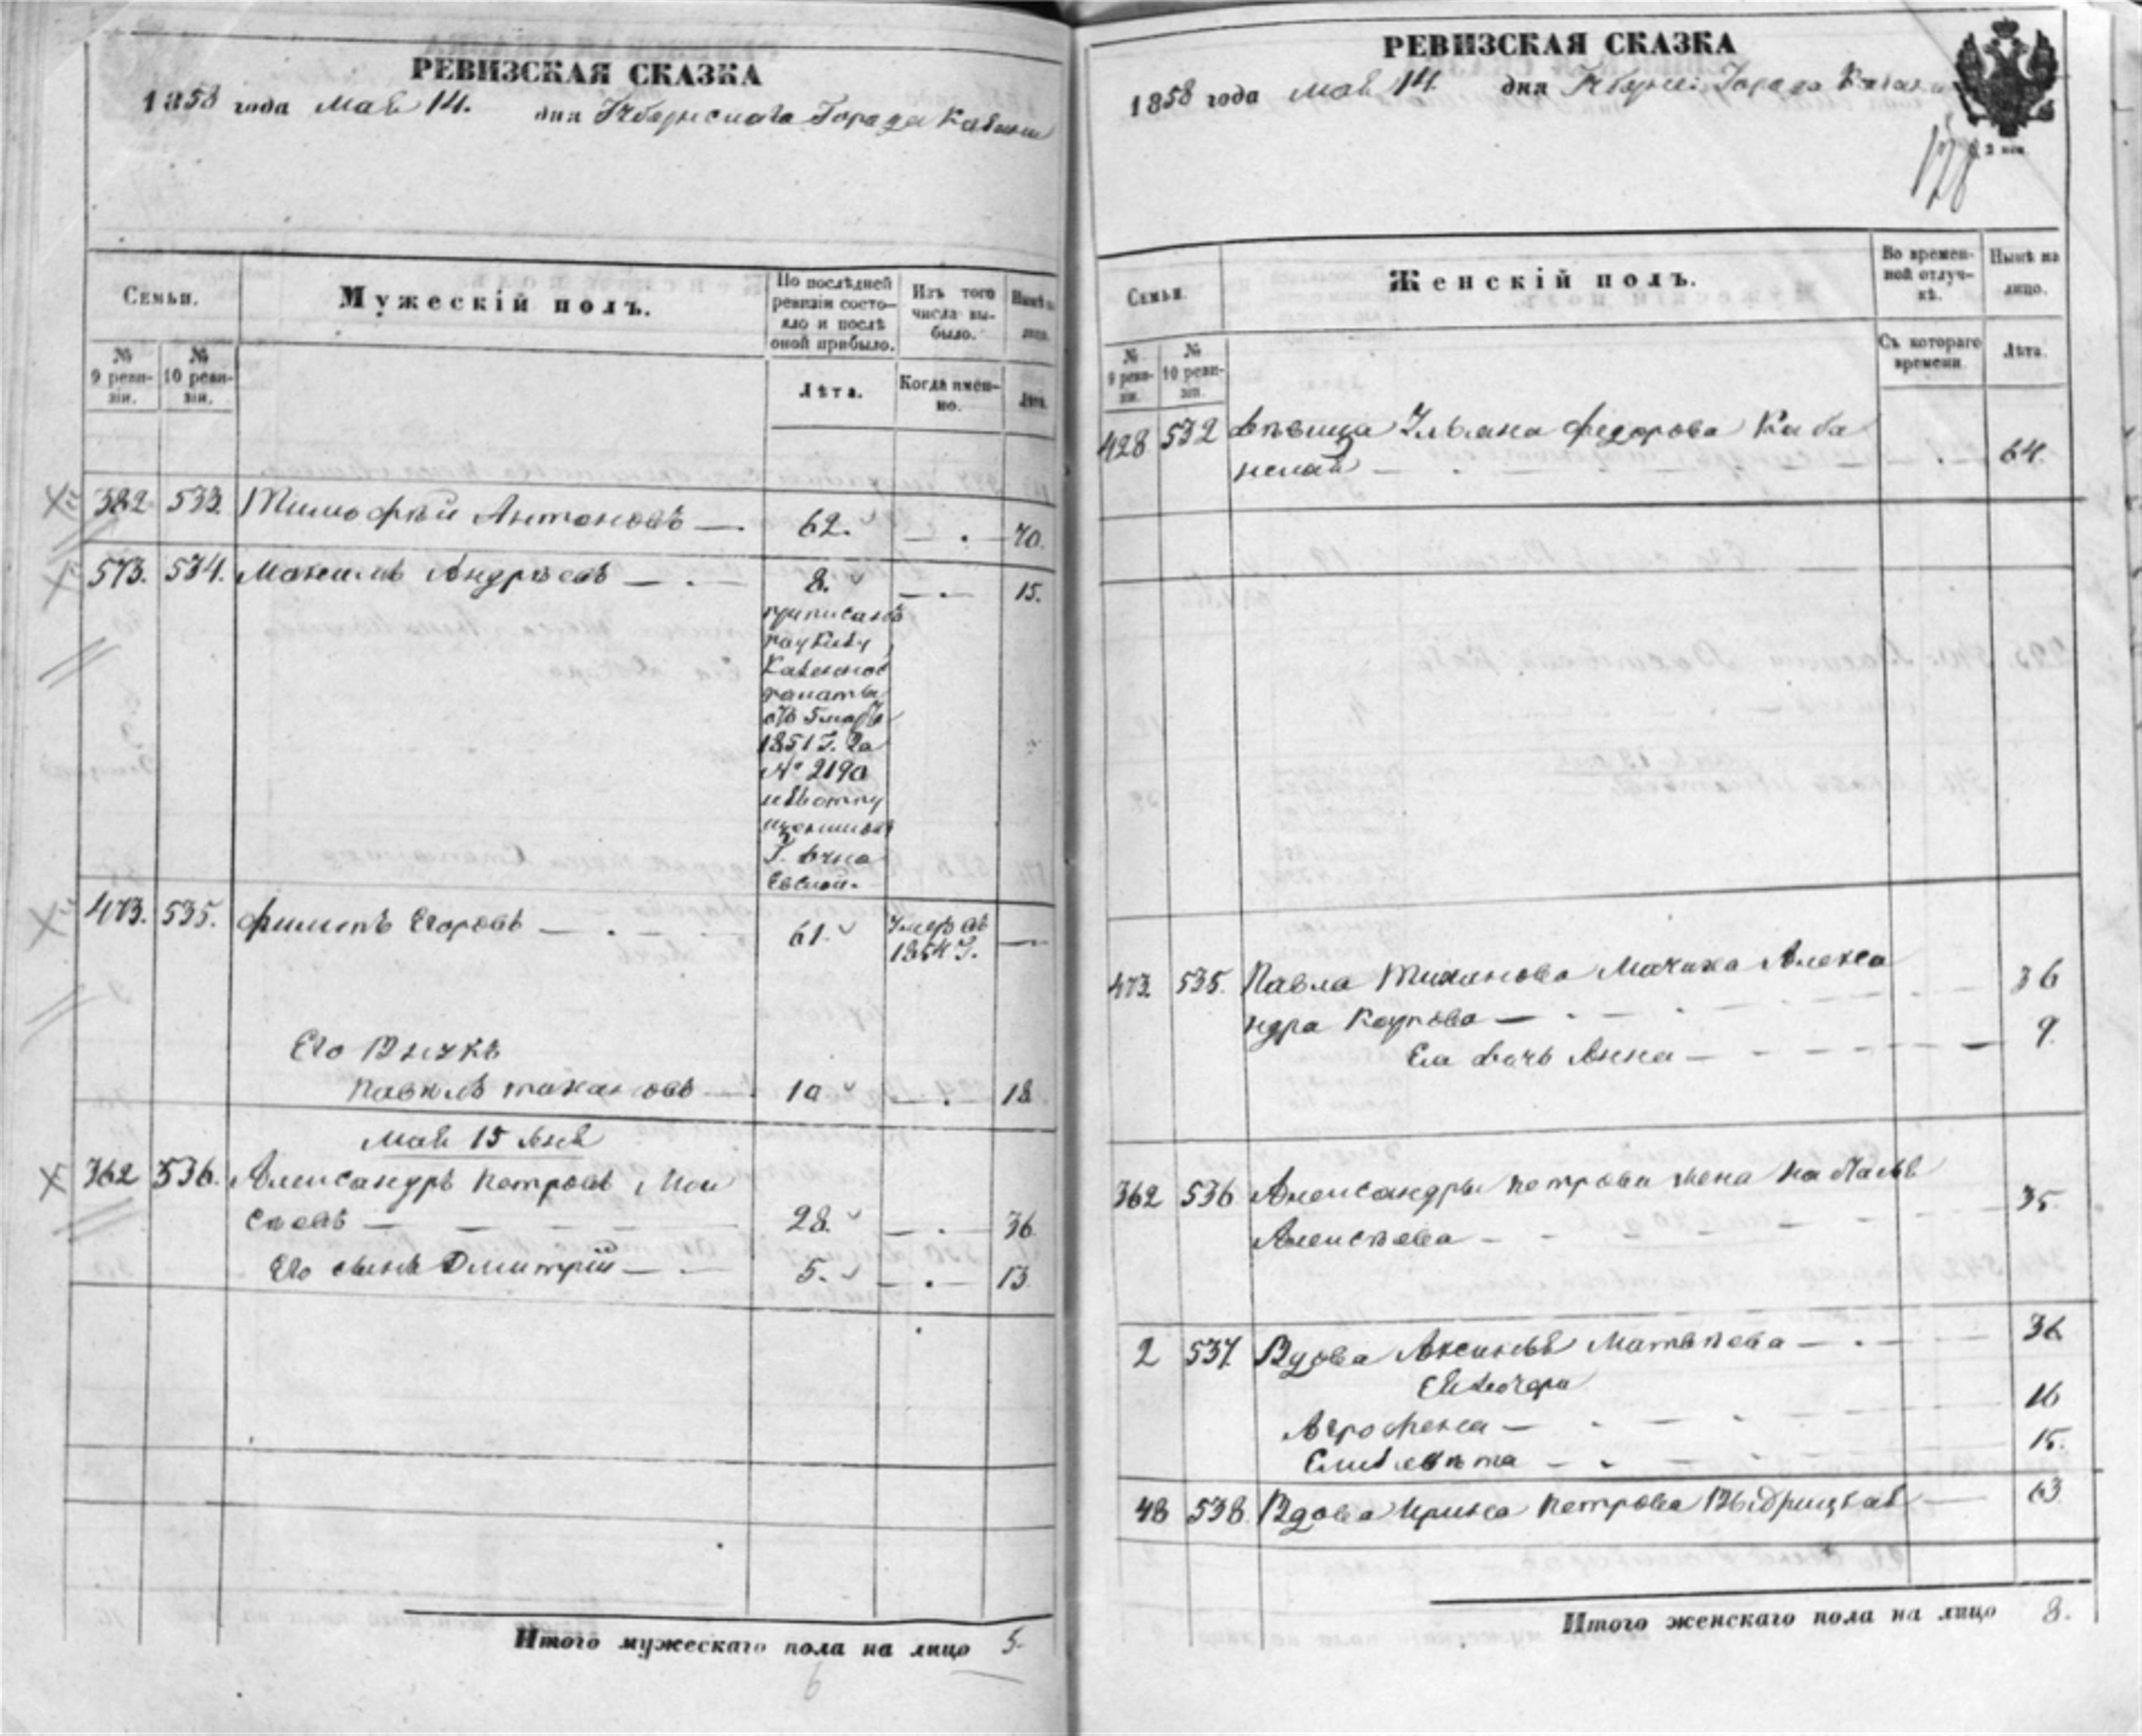 РЕВИЗСКАЯ СКАЗКА
1858 года Мая 14. дня Губернскаго Города Казани
Семьи.
Мужескій полъ.
По послѣдней ревизіи состояло и послѣ оной прибыло.
Изъ того числа выбыло.
Нынѣ на лицо.
№ 9 ревизіи.
№ 10 ревизіи.
Лѣта.
Когда именно.
Лѣта.
382 533. Тимофѣй Антоновъ — 62. — 70.
573. 534. Максимъ Андрѣевъ — 8. — 15.
приписанъ
по указу
Казенной
палаты
отъ 5 мар
1851 Г. За
№ 2190
изъ отпу
щенныхъ
Г.
473. 535. Филипъ Егоровъ — 61. Умеръ въ —
1854 Г.
Его Внукъ
Павилъ тихановъ — 10 — 18
Мая 15 дня
362 536. Александръ Петровъ Мои
сѣевъ — 28. — 36
Его сынъ Дмитрій — 5. — 13
Итого мужескаго пола на лицо 5.
6
РЕВИЗСКАЯ СКАЗКА
1858 года Мая 14. дня Губернс. Города Казани
178
Семьи.
Женскій полъ.
Во временной отлучкѣ.
Нынѣ на лицо.
№ 9 ревизіи.
№ 10 ревизіи.
Съ котораго времени.
Лѣта.
428 532 Дѣвица Ульяна Федорова Каба
нская — 64.
473. 535. Павла Тиханова Мачиха Алекса 36
ндра Карпова —
Ея дочь Анна — 9.
362 536 Александры Петрова жена Наталья
Алексѣева — 35.
2 537. Вдова Аксинья Матвѣева — 36
Ея дочери
Агрофена — 16
Елизавѣта — 15.
48 538. Вдова Ирина Петрова Выдрицкая — 63.
Итого женскаго пола на лицо 8.